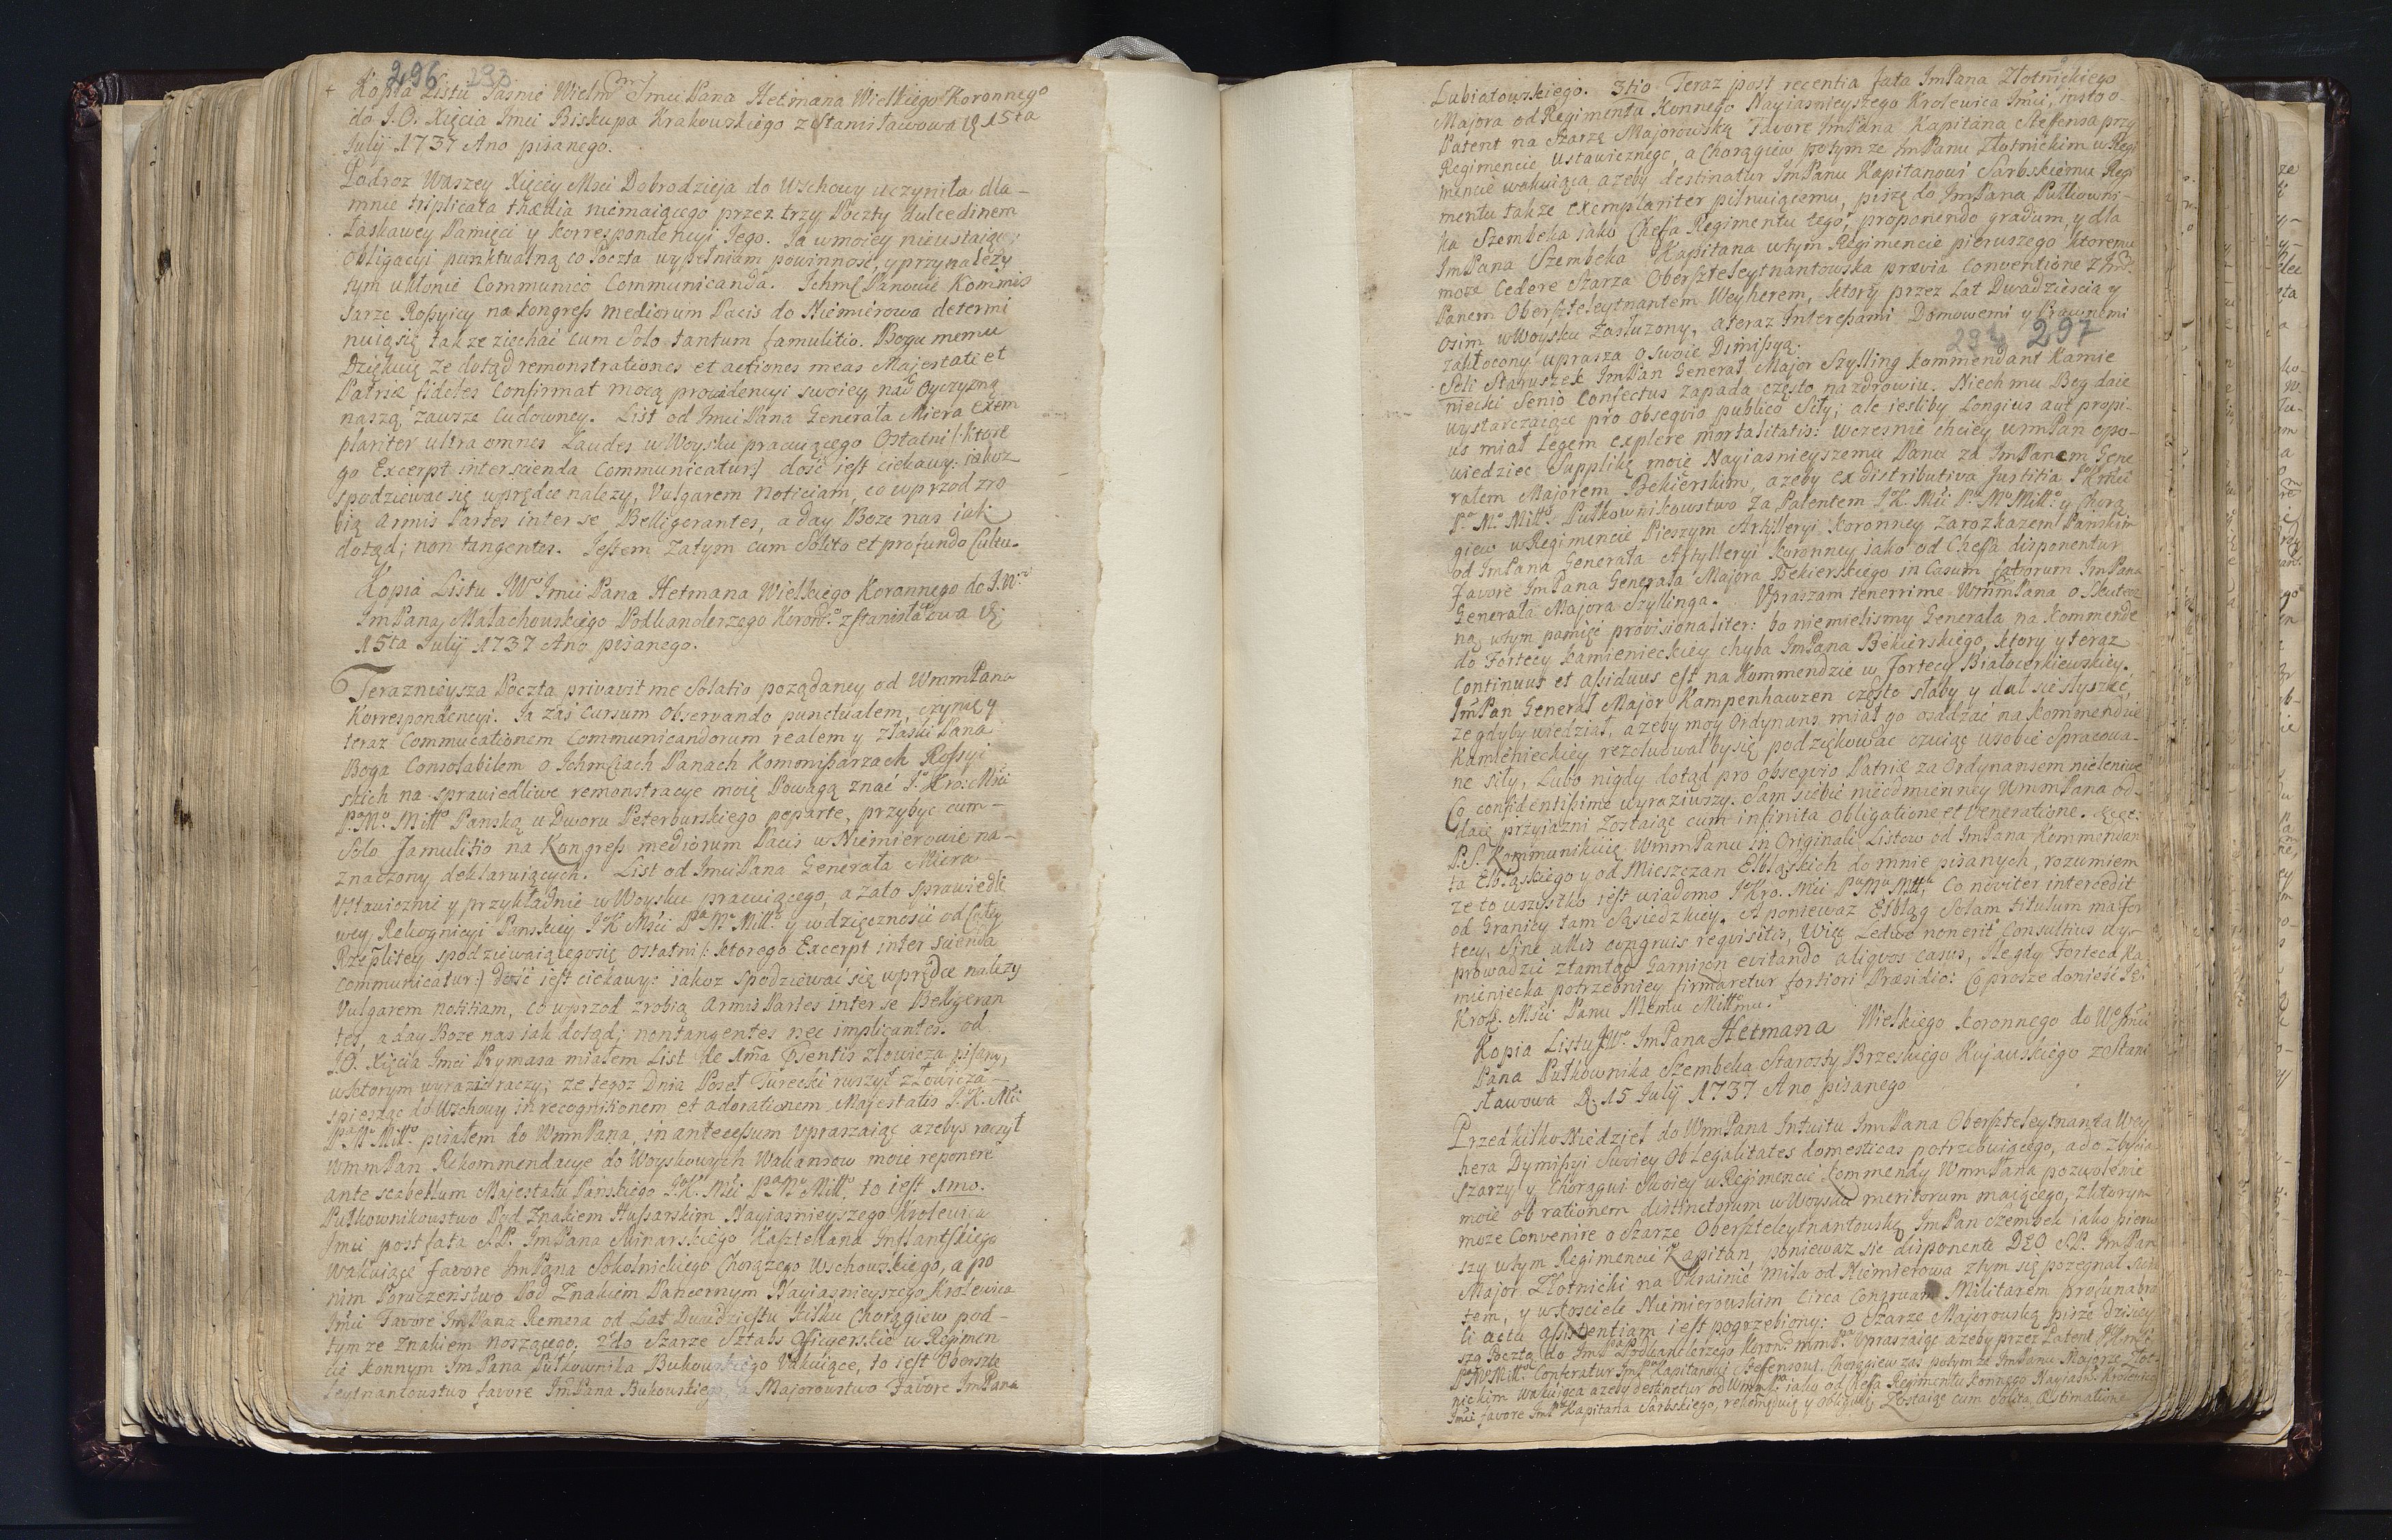 296 293
Kopia Listu Jasnie Wielm Imci Pana Hetmana Wielkiego Koronnego
do J.O. Xięcia Imci Biskupa Krakowskiego z Stanisławowa 15ta
Julij 1737 Ano pisanego.
Podroz Waszey Xięcey Msci Dobrodzieja do Wschowy uczyniła dla
mnie triplicata niemaiącego przez trzy Poczty dulcedinem
Łaskawey Pamięci y korrespondencyi Jego. Ja w moiey nieustaiącey
Obligacyi punktualną co Poczta wypełniam powinnosc, y przy należy
tym ukłonie Communico Communicanda. Ichmc Panowie Kommis
sarze Rossyiscy na kongress mediorum Pacis do Niemirowa determi
nuią się także ziechać cum Solo tantum famulitio. Bogu memu
Dziękuię że dotąd remonstrationes et actiones meas Majestati et
Patriæ fideles Confirmat mocą prowidencyi swoiey nad Oyczyzną
naszą zawsze Cudowney. List od Imci Pana Generała Miera exem
plariter ultra omnes Laudes w Woysku pracuiącego Ostatni /: ktore
go Excerpt inter scienda Communicatur :/ dość iest ciekawy: iakoz
spodziewac się w prędce nalezy, Vulgarem noticiam, co w przod zro
bią Armis Partes inter se Belligerantes, a day Boze nas iak
dotąd; non tangentes. Jestem Zatym cum Solito et profundo Cultu.
Kopia Listu JWo Imci Pana Hetmana Wielkiego Koronnego do J.W.
Im Pana Małachowskiego Podkanclerzego Koron: z Stanisławowa
15ta Julij 1737 Ano pisanego.
Teraznieysza Poczta privavit me Solatio pożądaney od WmmPana
Korrespondencyi. Ja zaś cursum Observando punctualem, czynię y
teraz Commucationem Communicandorum realem y z łaski Pana
Boga Consolabilem o Ichmciach Panach Kommissarzach Rossyi
skich na sprawiedliwe remonstracye moie Powagą znać J. Kro: Msci
P.M. Miłł Panską u Dworu Peterburskiego poparte, przybyc cum
Solo famulitio na Kongress mediorum Pacis w Niemierowie na
znaczony deklaruiących. List od Imci Pana Generała Miera
Ustawicznie y przykładnie w Woysku pracuiącego, a zato sprawiedli
wey Rekognicyi Panskiey J K Msci P. M. Miłł. y wdzięczności od Całey
Rzeplitey spodziewaiącego się ostatni /: ktorego Excerpt inter scienda
Communicatur :/ dość iest ciekawy: iakoz spodziewać się w prędce nalezy
Vulgarem notitiam, co w przod zrobią Armis Partes inter se Belligeran
tes, a day Boze nas iak dotąd; non tangentes nec implicantes. od
J.O. Xięcia Imci Prymasa miałem List de 1ma Psentis z Łowicza pisany,
w ktorym wyrazić raczy; że tegoz dnia Poseł Turecki ruszył z Łowicza
spiesząc do Wschowy in recognitionem et adorationem Majestatis J.K. Mci
P. M. Miłł. pisałem do WmmPana, in antecessum upraszaiąc azebys raczył
WmmPan Rekommendacye do Woyskowych Wakansow moie reponere
ante scabellum Majestatu Panskiego J.K. Msci P. M. Miłł. to iest 1mo.
Pułkownikowstwo Pod Znakiem Hussarskim Nayiasnieyszego Krolewica
Imci post fata S.P. ImPana Swinarskiego Kasztelana Inflantskiego
wakuiące favore ImPana Sokolnickiego Chorążego Wschowskiego, a po
nim Poruczenstwo Pod Znakiem Pancernym Nayiasnieyszego Krolewica
Imci Favore ImPana Remera od Lat Dwudziestu kilku Chorągiew pod
tym ze Znakiem noszącego. 2do Szarze Sztabs Officyerskie w Regimen
cie konnym Im Pana Pułkownika Bukowskiego Vakuiące, to iest Oberszte
leytnantowstwo favore ImPana Bukowskiego, a Majorowstwo Favore ImPana
Lubiatowskiego. 3tio Teraz post recentia fata ImPana Złotnickiego
Majora od Regimentu Konnego Nayiasnieyszego Krolewica Imci, insto o
Patent na Szarzę Majorowską Favore ImPana Kapitana Steffensa przy
Regimencie Ustawicznego, a Chorągiew potym ze ImPanu Złotnickim w Regi
mencie wakuiąca, azeby destinatur ImPanu Kapitanowi Sarbskiemu Regi
mentu takze exemplariter pilnuiącemu, piszę do ImPana Pułkowni
ka Szembeka jako Cheffa Regimentu tego, proponendo gradum, y dla
ImPana Szembeka Kapitana w tym Regimencie pierwszego ktoremu
moze Cedere Szarza Oberszteleytnantowska prævia Conventione z Im
Panem Oberszteleytnantem Weyherem, ktory przez Lat Dwadziescia y
Osim w Woysku Zasłuzony, a teraz Interessami Domowemi y Prawnemi
297
zakłocony uprasza o swoie Dimissyą.
Soli Staruszek ImPan Generał Major Szylling Kommendant Kamie
niecki Senio Confectus zapada często na zdrowiu. Niech mu Bog daie
wystarczaiące pro obsequio publico Siły; ale iesliby Longius aut propi
us miał Legem explere mortalitatis: wczesnie chciey WmPan opo
wiedziec Supplikę moie Nayiasnieyszemu Panu za ImPanem Gene
rałem Majorem Bekierskim, azeby ex distributiva Justitia J K Mci
P. M. Miłł. Pułkownikowstwo za Patentem J.K. Mci P. M. Miłł. y Chorą
giew w Regimencie Pieszym Artilleryi Koronney za rozkazem Panskim
od ImPana Generała Artylleryi Koronney iako od Cheffa disponentur
Favore ImPana Generała Majora Bekierskiego in Casum fatorum ImPana
Generała Majora Szyllinga. Upraszam tenerrime WmmPana o skutecz
ną w tym pamięć provisionaliter: bo niemielismy Generała na Kommende
do Fortecy Kamienieckiey chyba ImPana Bekierskiego, ktory y teraz
Continuus et assiduus est na Kommendzie w Fortecy Białocerkiewskiey.
ImPan Generał Major Kampenhawzen często słaby y dał się słyszeć,
że gdyby wiedział, azeby moy Ordynans miał go osadzać na Kommendzie
Kamienieckiey rezolwował by się podziękować czuiąc w sobie spracowa
ne siły, Lubo nigdy dotąd pro obsequio Patriæ za Ordynansem nieleniwe
Co confidentissime wyraziwszy. Sam siebie nieodmienney WmmPana od
daię przyiazni zostaiąc cum infinita Obligatione et Veneratione.
P.S. Kommunikuię WmmPanu in Originali Listow od ImPana Kommendan
ta Elbląskiego y od Mieszczan Elbląskich do mnie pisanych, rozumiem
ze to wszystko iest wiadomo J Kro. Mci P. M. Miłł. Co noviter intercedit
od Granicy tam Sąsiedzkiey. A poniewaz Elbląg Solam titulum ma For
tecy, Sine ullis congruis requisitis, Więc Ledwo non erit Consultius wy
prowadzić ztamtąd Garnizon evitando aliquos casus, Ktegdy Forteca Ka
mieniecka potrzebniey firmaretur fortiori Præsidio: Co proszę donieść Je
Krolę. Mści Panu Memu Miłłmu.
Kopia Listu JW. ImPana Hetmana Wielkiego Koronnego do W Imci
Pana Pułkownika Szembeka Starosty Brzeskiego Kujawskiego z Stani
sławowa D. 15 Julij 1737 Ano pisanego
Przed kilko Niedziel do WmmPana Intuitu ImPana Oberszteleytnanta Wey
hera Dymissyi Swoiey ob Legalitates domesticas potrzebuiącego, a do zbycia
Szarzy y Chorągwi Swoiey w Regimencie Kommendy WmmPana pozwolenie
moie ob rationem distinctorum w Woysku meritorum maiącego, z ktorym
moze Convenire o Szarze Oberszteleytnantowską ImPan Szembek iako pierw
szy w tym Regimencie Kapitan, poniewaz sic disponente DEO S.P. ImPan
Major Złotnicki na Ukrainie mila od Niemierowa z tym się pozegnał swia
tem, y w Kosciele Niemierowskim circa Congruam Militarem
li actu assistentiam iest pogrzebiony: o Szarze Majorowską piszę dzisiey
szą Pocztą do ImP Podkanclerzego Koron: mmP. Upraszaiąc azeby przez Patent J K Mci
P. M. Miłł. Conferatur Imć P. Kapitanowi Steffensowi, Chorągiew zas potym ze ImPanu Majorze Złot
nickim wakuiąca azeby destinetur od WmmP. iako od Cheffa Regimentu Konnego Nayiasn: Krolewica
Imci favore ImP Kapitana Sarbskiego, rekommenduię y obliguię, Zostaiąc cum Solita Æstimatione